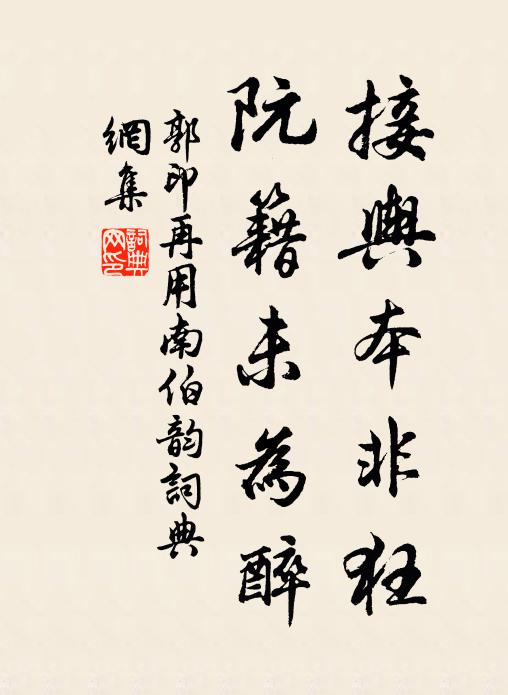 接輿本非狂
阮籍未為醉
郭印再用南伯韵詞典
網集
詞典
网印